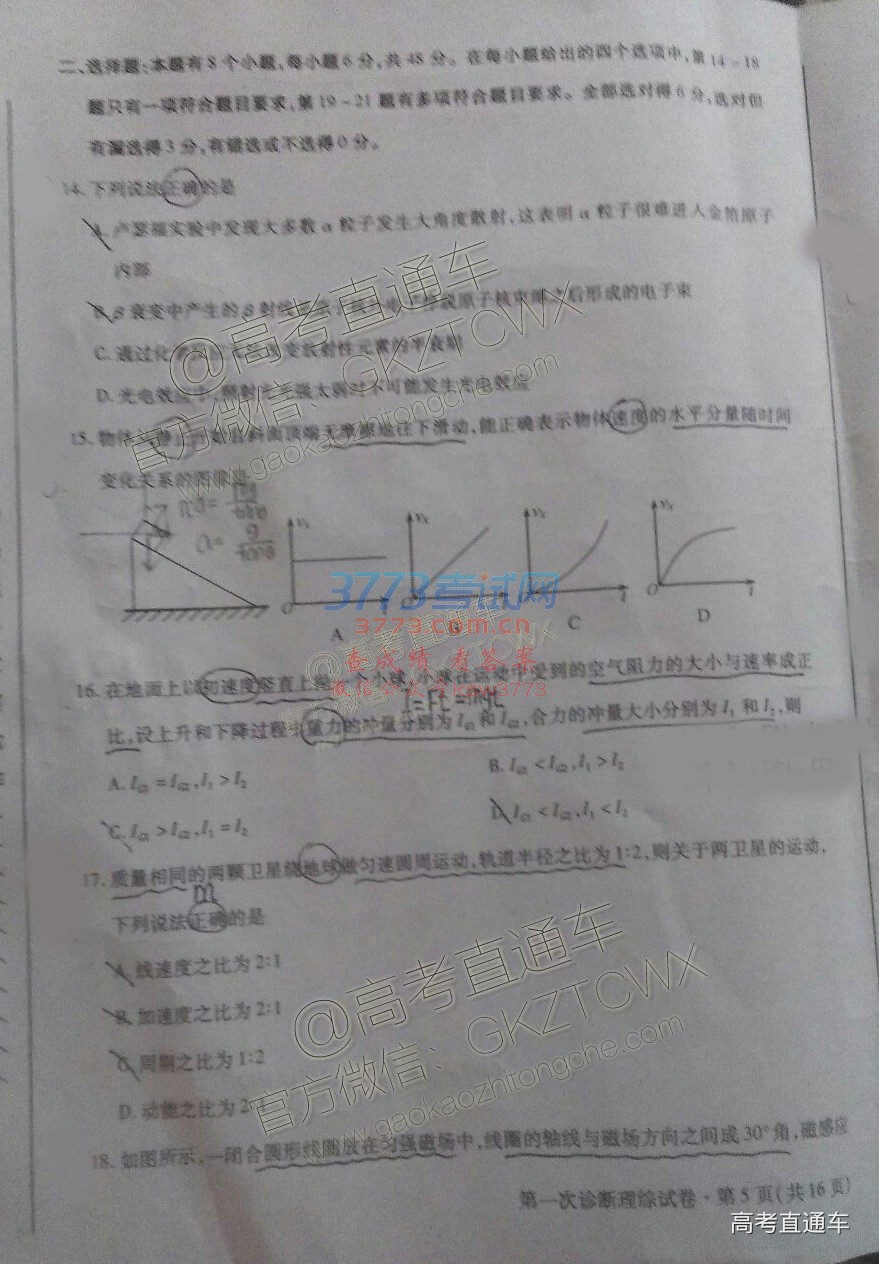 二、选择题:本题有8个小题,每小题6分,共48分。在每小题给出的四个选项中,第14~18
题只有一项符合题目要求,第19~21题有多项符合题目要求。全部选对得6分,选对但
有漏选得3分,有错选或不选得0分。
14.下列说法正确的是
A.卢瑟福实验中发现大多数α粒子发生大角度散射,这表明α粒子很难进入金箔原子
内部
B.β衰变中产生的β射线 原子核束缚之后形成的电子束
C.通过化 变放射性元素的半衰期
D.光电效应中,照射光光强太弱时不可能发生光电效应
15.物体 静止开始沿斜面顶端无摩擦地往下滑动,能正确表示物体速度的水平分量随时间
变化关系的图像是
a=
a= g
vx
vx
vx
vx
O t
O
O t
O t
A
B
C
D
3773考试网
3773.com.cn
查成绩 有答案
16.在地面上以初速度竖直上抛一个小球,小球在运动中受到的空气阻力的大小与速率成正
I=Ft=mgt
比,设上升和下降过程中重力的冲量分别为IG1和IG2,合力的冲量大小分别为I1和I2,则
A.IG1=IG2,I1>I2
B.IG1<IG2,I1>I2
C.IG1>IG2,I1=I2
D.IG1<IG2,I1<I2
17.质量相同的两颗卫星绕地球做匀速圆周运动,轨道半径之比为1:2,则关于两卫星的运动,
m
下列说法正确的是
A.线速度之比为2:1
B.加速度之比为2:1
C.周期之比为1:2
D.动能之比为2:1
18.如图所示,一闭合圆形线圈放在匀强磁场中,线圈的轴线与磁场方向之间成30°角,磁感应
第一次诊断理综试卷·第5页(共16页)
@高考直通车
官方微信:GKZTCWX
www.gaokaozhitongche.com
@高考直通车
官方微信:GKZTCWX
www.gaokaozhitongche.com
高考直通车